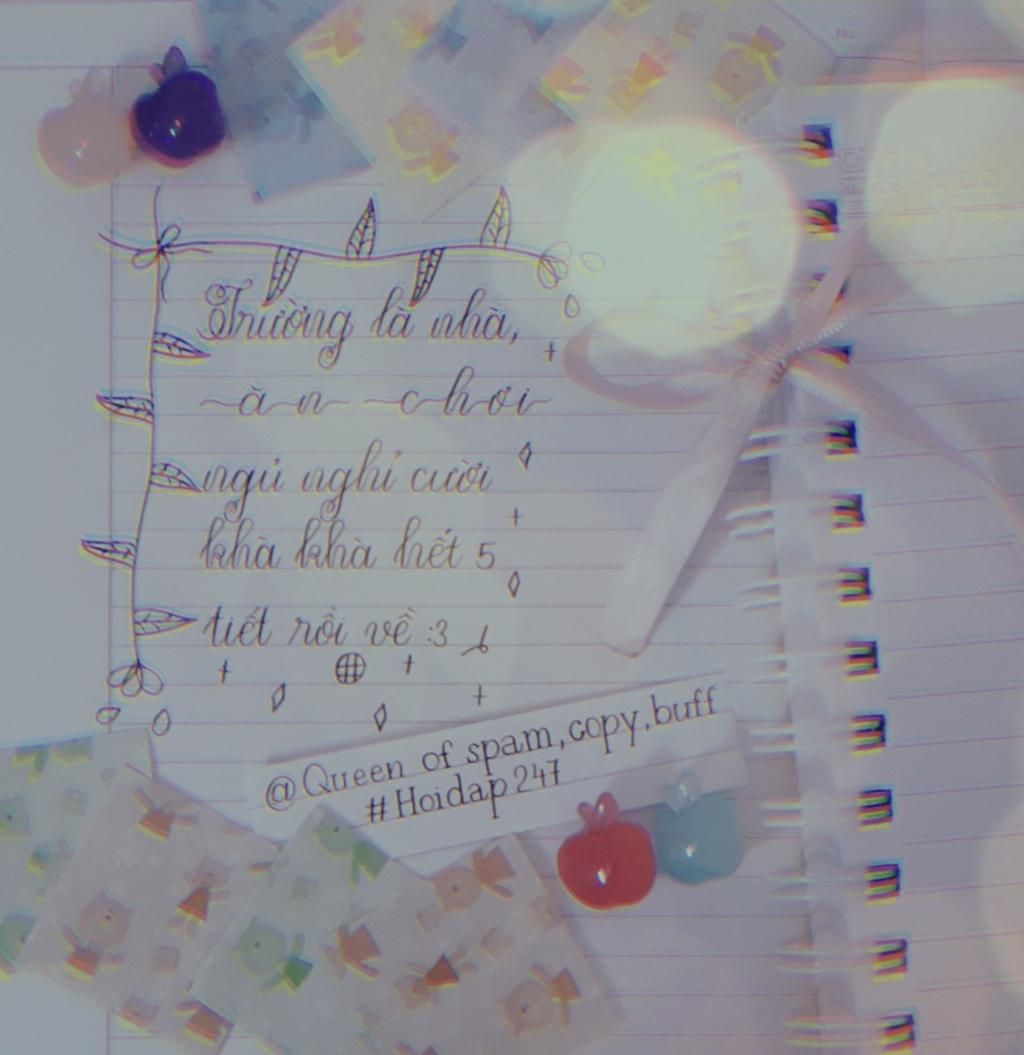 No
Trường là nhà,
~à~n~ ~c~h~ơ~i~
ngủ nghỉ cười
khà khà hết 5
tiết rồi về :3
@Queen of spam,copy,buff
#Hoidap247